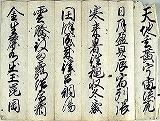 天地玄黄宇宙洪荒
日月盈昃辰宿列張
寒来暑往秋収冬蔵
閏餘成歳律呂調陽
雲騰致雨露結為霜
金生麗水玉出崑岡